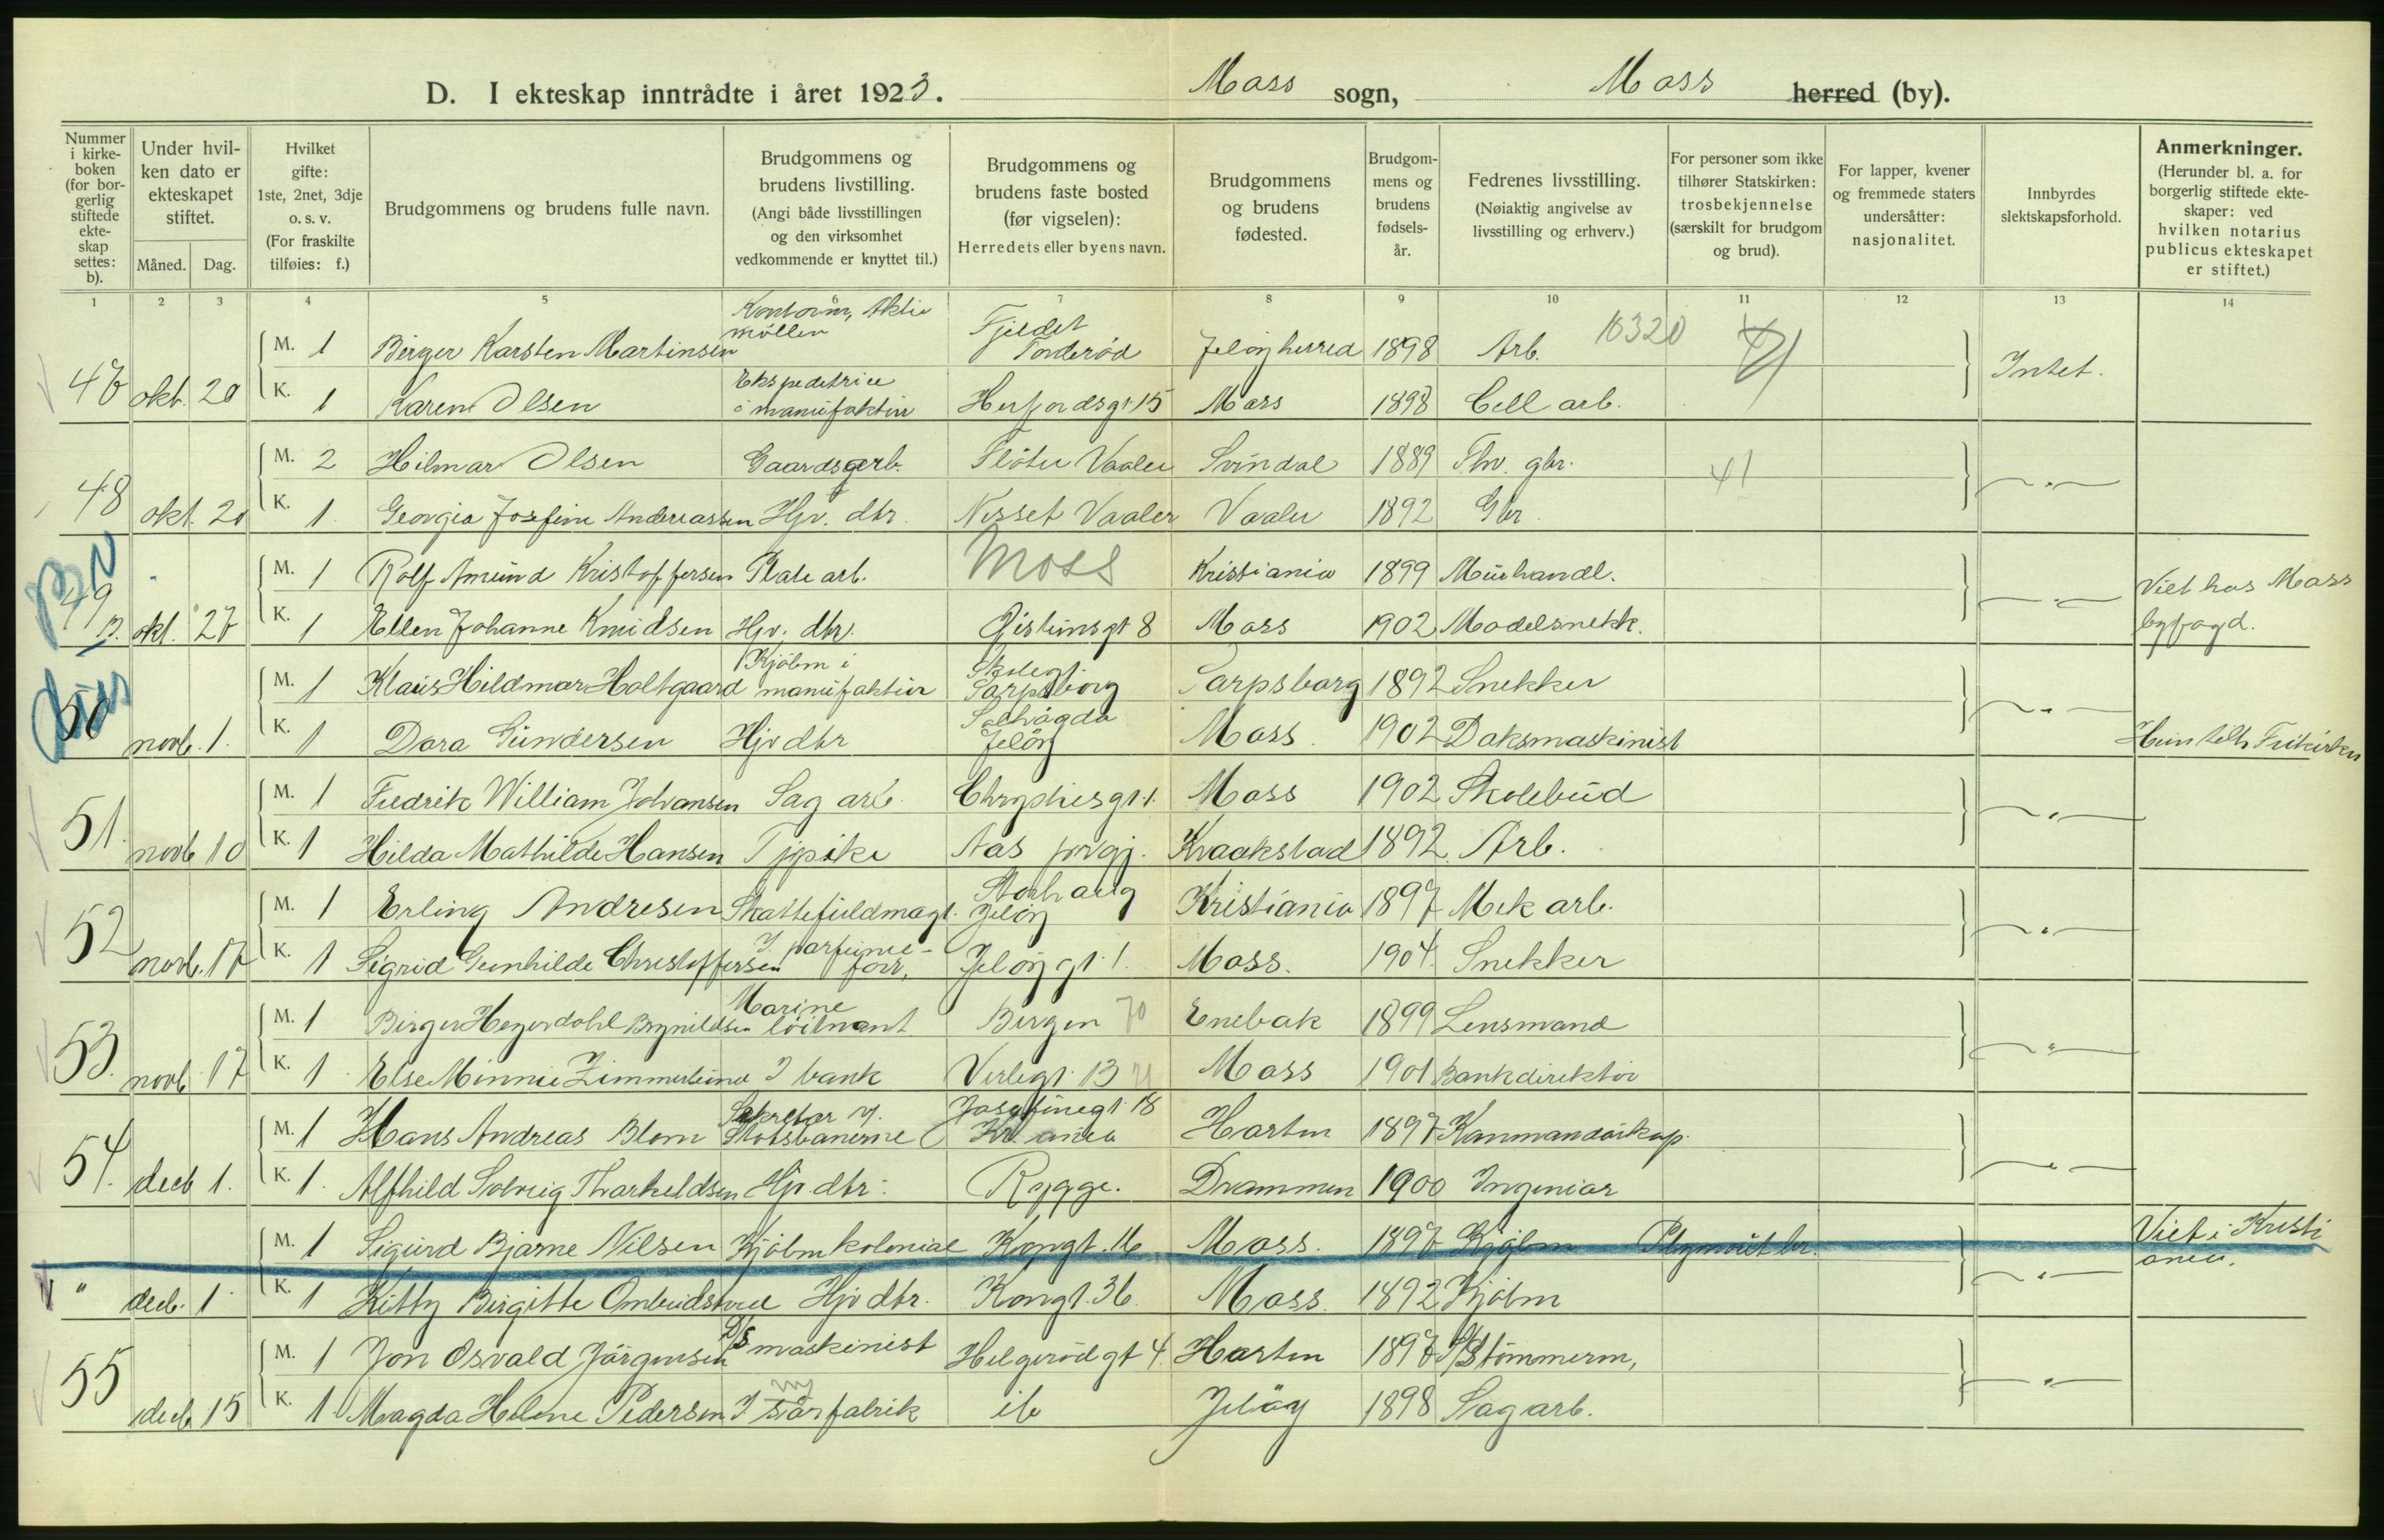 D. I ekteskap inntrådte i året 1923. Moss sogn, Moss herred (by).
Nummer i kirkeboken (for borgerlig stiftede ekteskap settes: b).
Under hvilken dato er ekteskapet stiftet.
Måned. Dag.
Hvilket gifte: 1ste, 2net, 3dje o. s. v. (For fraskilte tilføies: f.)
Brudgommens og brudens fulle navn.
Brudgommens og brudens livstilling. (Angi både livsstillingen og den virksomhet vedkommende er knyttet til.)
Brudgommens og brudens faste bosted (før vigselen): Herredets eller byens navn.
Brudgommens og brudens fødested.
Brudgommens og brudens fødselsår.
Fedrenes livsstilling. (Nøiaktig angivelse av livsstilling og erhverv.)
For personer som ikke tilhører Statskirken: trosbekjennelse (særskilt for brudgom og brud).
For lapper, kvener og fremmede staters undersåtter: nasjonalitet.
Innbyrdes slektskapsforhold.
Anmerkninger. (Herunder bl. a. for borgerlig stiftede ekteskaper: ved hvilken notarius publicus ekteskapet er stiftet.)
1 2 3 4 5 6 7 8 9 10 11 12 13 14
M. 1 Birger Karsten Martinsen Kontorm, Aktie møllen Fjeldet Torderød Jeløy herred 1898 Arb. 10320
47 okt. 20 K. 1 Karen Olsen Ekspeditrice i manufaktur Herfordsgt 15 Moss 1898 Cell arb. Intet.
M. 2 Hilmar Olsen Gaardsarb. Fløter Vaaler Svindal 1889 Fhv. gbr. 41
48 okt. 20 K. 1 Georgia Josefine Andreassen Hjv. dtr. Nesset Vaaler Vaaler 1892 Gbr. — " —
M. 1 Rolf Amund Kristoffersen Plate arb. Moss Kristiania 1899 Murhandl. Viet hos Moss
49 B. okt. 27 K. 1 Ellen Johanne Knudsen Hjv. dtr. Gistumsgt 8 Moss 1902 Modelsnekk. — " — byfogd.
M. 1 Klaus Hildmar Holtgaard Kjøbm i manufaktur Skolegt. Sarpsborg Sarpsborg 1892 Snekker
50 novb. 1. K. 1 Dora Gundersen Hjv dtr Solhøgda Jeløy Moss. 1902 Daksmaskinist — " — Hun tilh Frikirken
M. 1 Fredrik William Johansen Sag arb. Chrystiesgt. 1. Moss 1902 Skolebud
51. novb 10 K. 1 Hilda Mathilde Hansen Tjpike Aas prgj. Kraakstad 1892 Arb. — " —
M. 1 Erling Andresen Skattefuldmægt. Storhaug Jeløy Kristiania 1897 Mek arb.
52 novb. 17 K. 1 Sigrid Gunhilde Christoffersen I parfumeforr. Jeløygt. 1. Moss. 1904 Snekker — " —
M. 1 Birger Heyerdahl Brynildsen Marine løitnant Bergen 70 Enebak 1899 Lensmand
53. novb 17 K. 1 Else Minnie Zimmerlund I bank Verlegt. 13 Moss 1901 Bankdirektør — " —
M. 1 Hans Andreas Blom Sekretær v. Statsbanerne Josefinegt. 18 Kr.ania Horten 1897 Kommandørkap.
54. decb 1. K. 1. Alfhild Solveig Thorkeldsen Hjv. dtr. Rygge. Drammen 1900 Ingeniør — " —
M. 1 Sigurd Bjarne Nilsen Kjøbm kolonial Kongt. 16 Moss. 1897 Kjøbm Plymouthbr. Viet i Kristi
" decb. 1 K. 1 Kitty Birgitte Ombudstvet Hjv dtr. Kongt. 36. Moss. 1892 Kjøbm — " — ania.
M. 1 Jon Osvald Jørgensen D/S maskinist Helgerødgt 4. Horten 1897 Tømmerm,
55 decb. 15 K. 1 Magda Helene Pedersen I fabrik ib Jeløy 1898 Sagarb. — " —